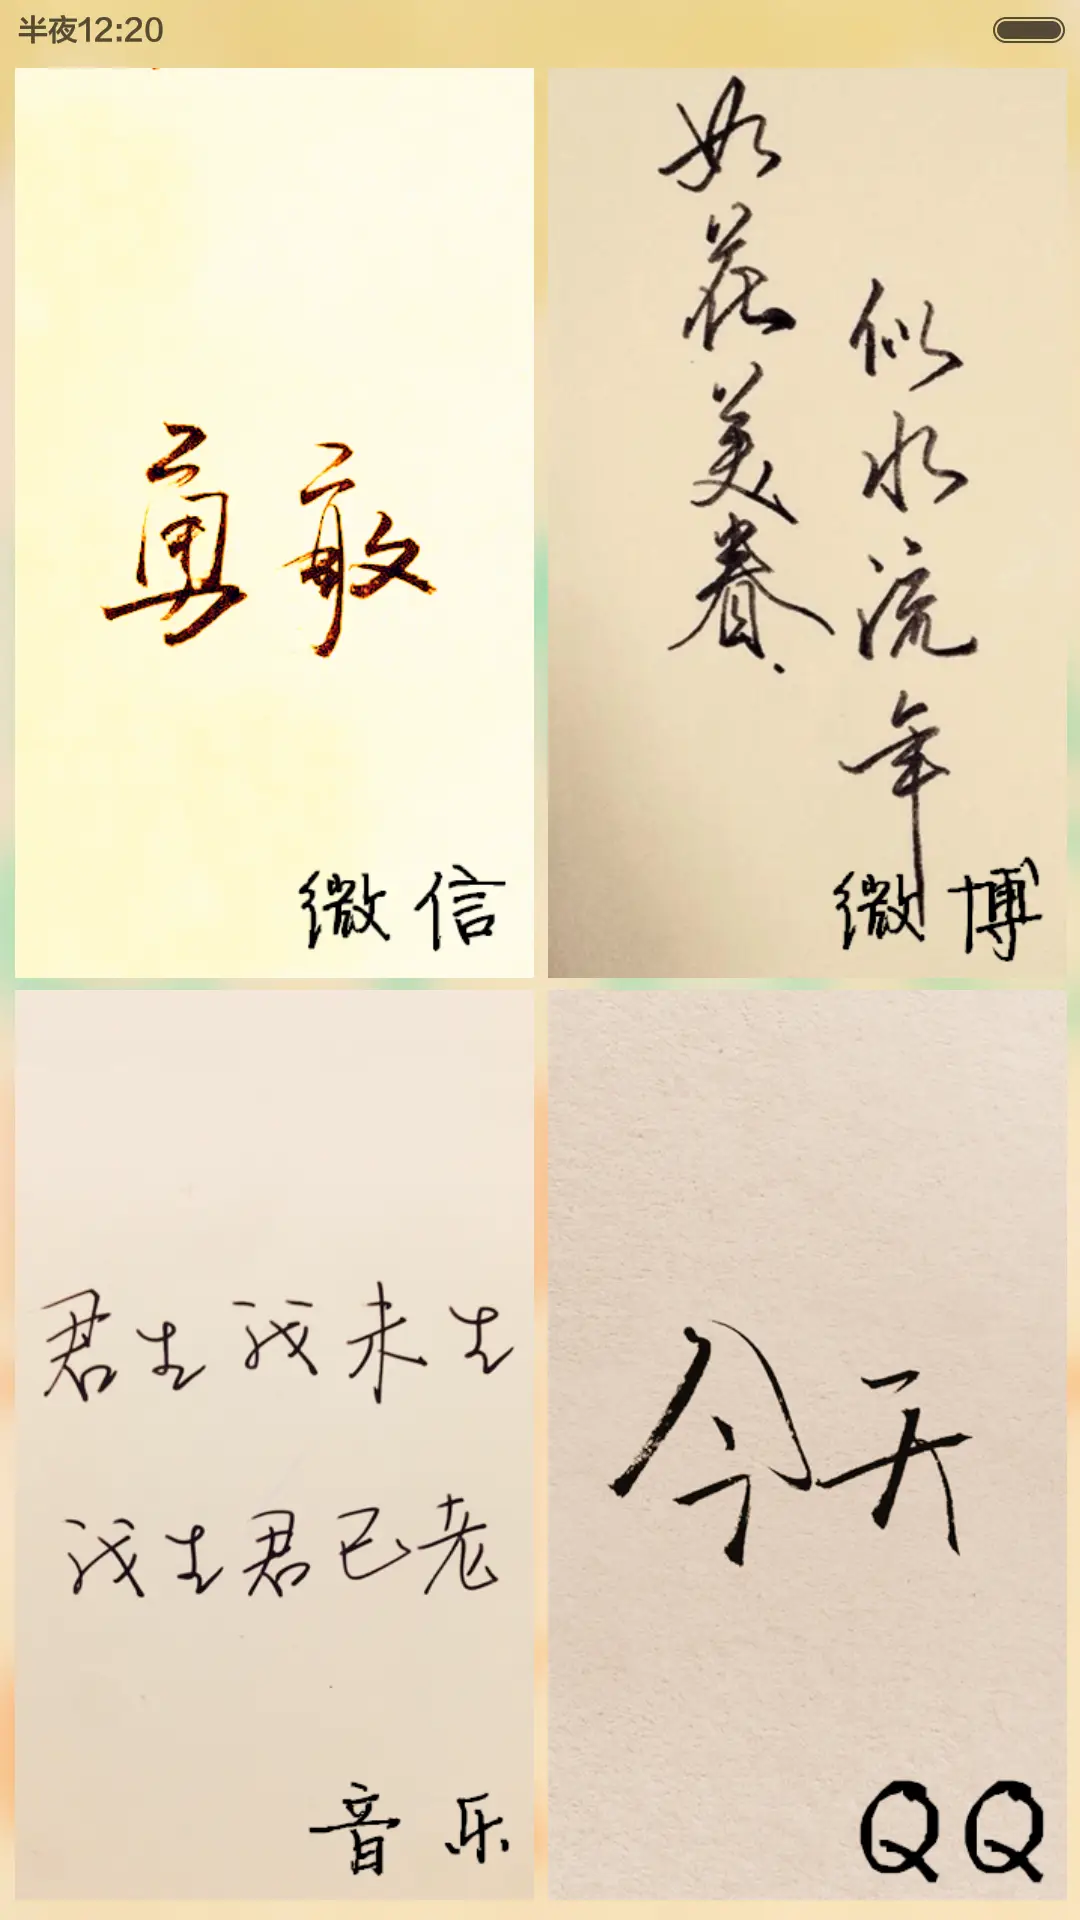 半夜12:20
勇敢
微信
如花美眷
似水流年
微博
君生我未生
我生君已老
音乐
今天
QQ